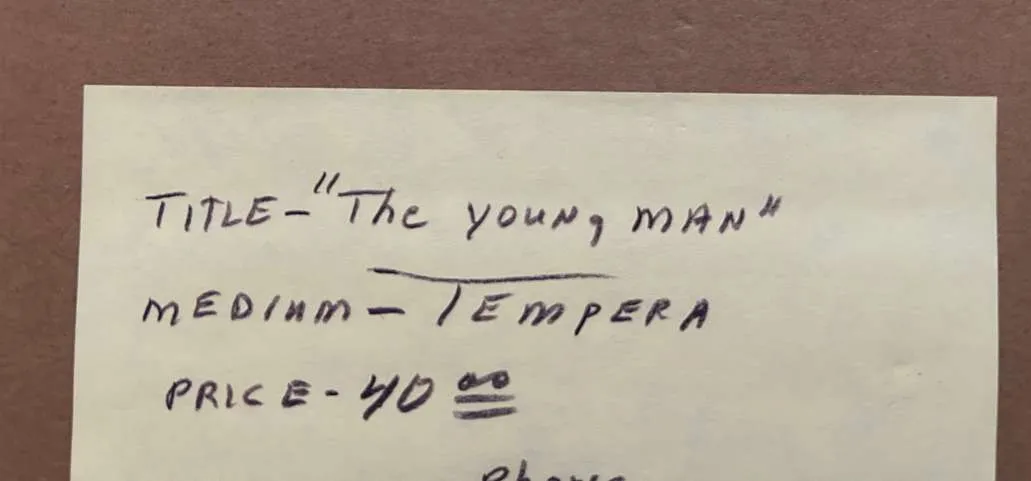 TITLE - "The young MAN"
MEDIUM - TEMPERA
PRICE - 40 00